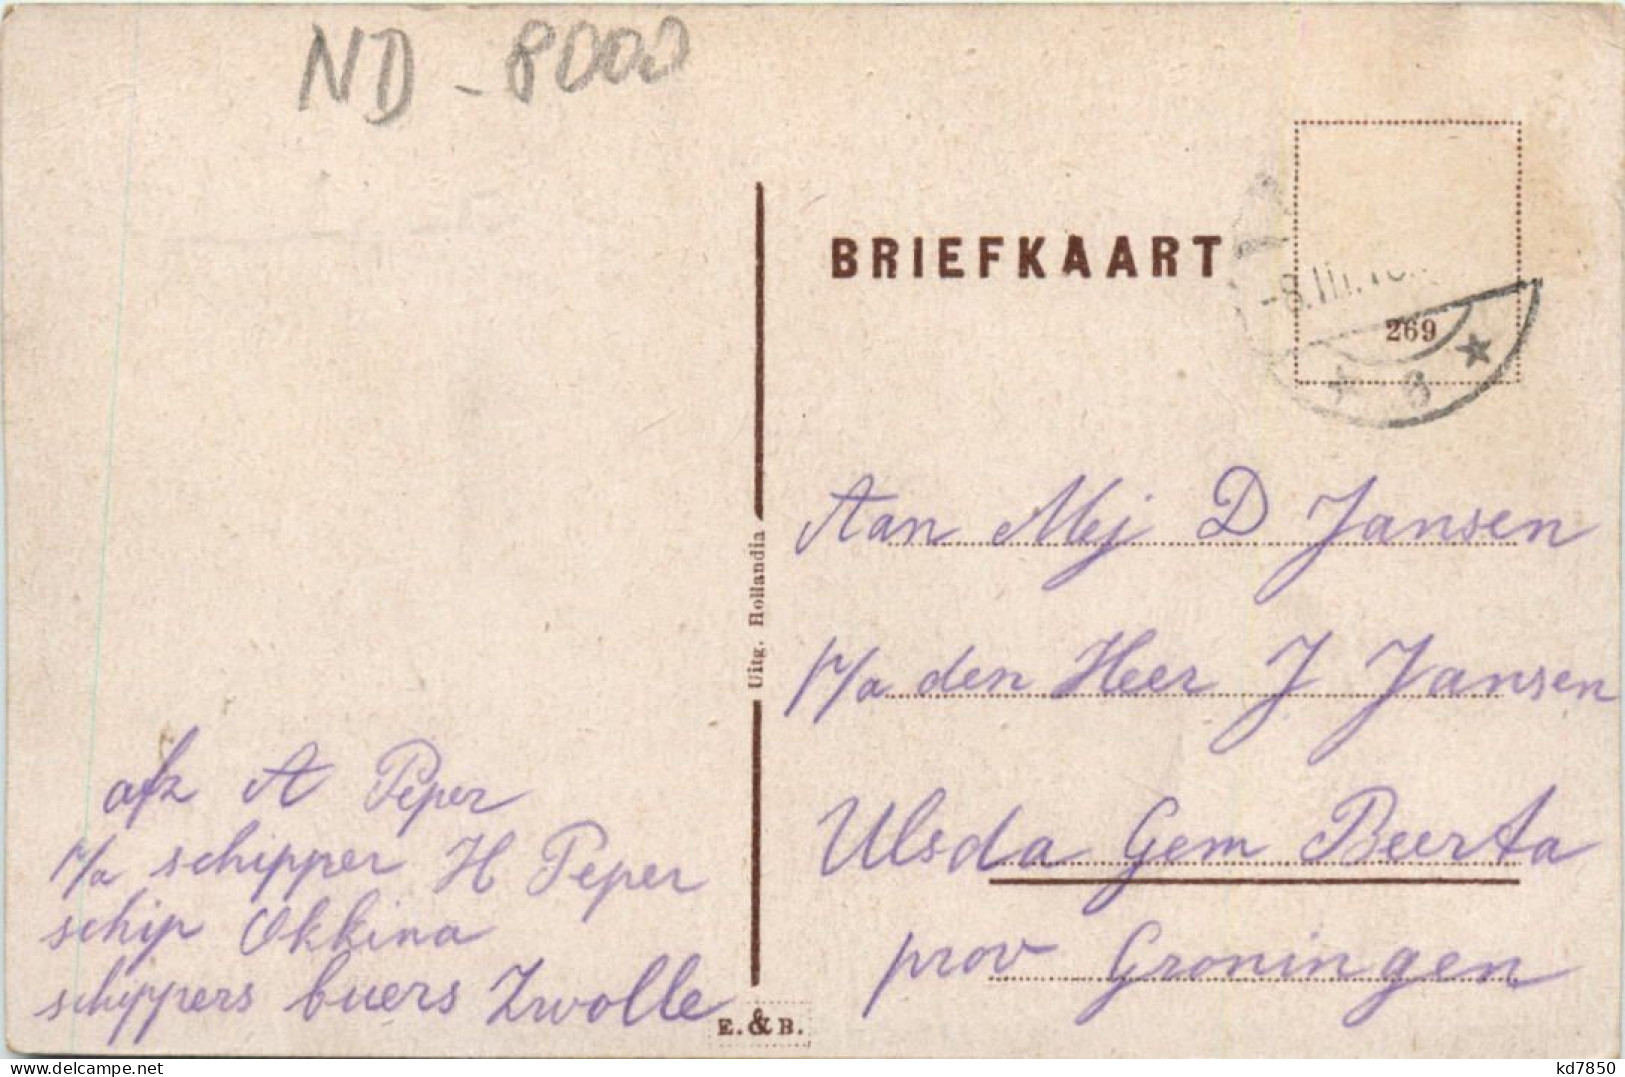 ND - 8000
BRIEFKAART
-8.III.
269
8
Aan Mej D Jansen
p/a den Heer J Jansen
Ulsda Gem Beerta
prov Groningen
Uitg. Hollandia
afz A Peper
p/a schipper H Peper
schip Okkina
schippers buers Zwolle
E. & B.
delcampe.net
kd7850